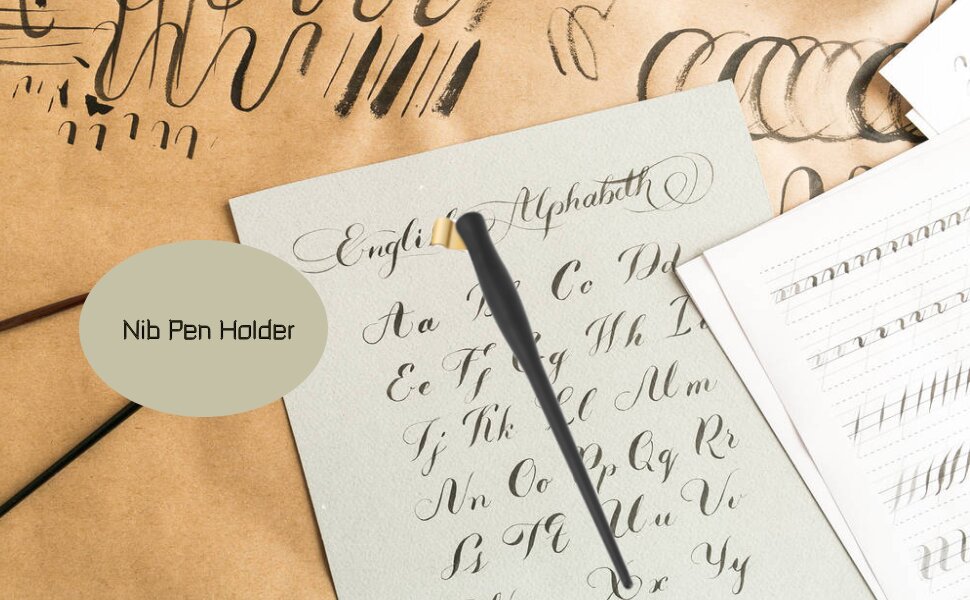 Engli Alphabeth
Nib Pen Holder
Aa Cc Dd
Ee Ff Gg Hh I
Jj Kk Ll Mm
Nn Oo Pp Qq Rr
Ss Tt Uu Vv
Xx Yy